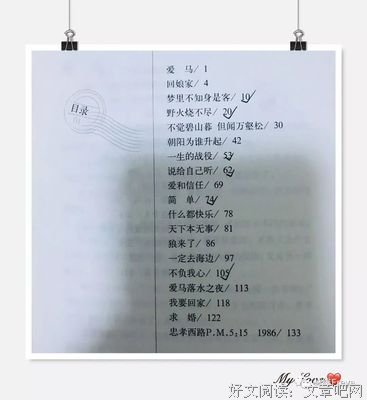 目录
爱 马/ 1
回娘家/ 4
梦里不知身是客/ 10
野火烧不尽/ 20
不觉碧山暮 但闻万壑松/ 30
朝阳为谁升起/ 42
一生的战役/ 53
说给自己听/ 62
爱和信任/ 69
简 单/ 74
什么都快乐/ 78
天下本无事/ 81
狼来了/ 86
一定去海边/ 97
不负我心/ 105
爱马落水之夜/ 113
我要回家/ 118
求 婚/ 122
忠孝西路P.M.5:15 1986/ 133
My Love
好文阅读：文章吧网